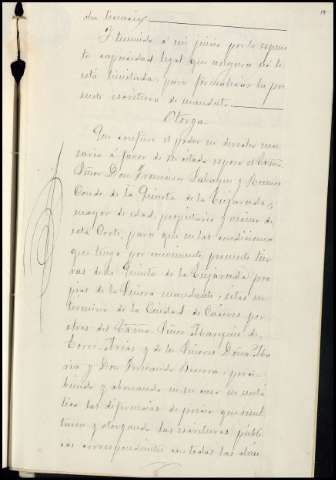 Y teniendo á mi juicio por lo expues-
to capacidad legal que asegura no le
está limitada, para formalizar la pre-
sente escritura de mandato.
Otorga
Que confiere el poder en derecho nece-
sario á favor de su citado esposo el Excmo.
Señor Don Francisco
Conde de la Quinta de la Enjarada,
mayor de edad, propietario y vecino de
esta Corte, para que en las condiciones
que tenga por conveniente, permute tier-
ras de la Quinta de la Enjarada pro-
pias de la Señora mandante, sitas en
término de la Ciudad de Cáceres por
otras del Excmo. Señor Marqués de
Torre-Arias y de los Señores Doña Ma-
ria y Don Fernando, perci-
biendo y abonando en su caso en metá-
lico las diferencias de precio que resul-
taren y otorgando las escrituras públi-
cas correspondientes con todas las cláu-